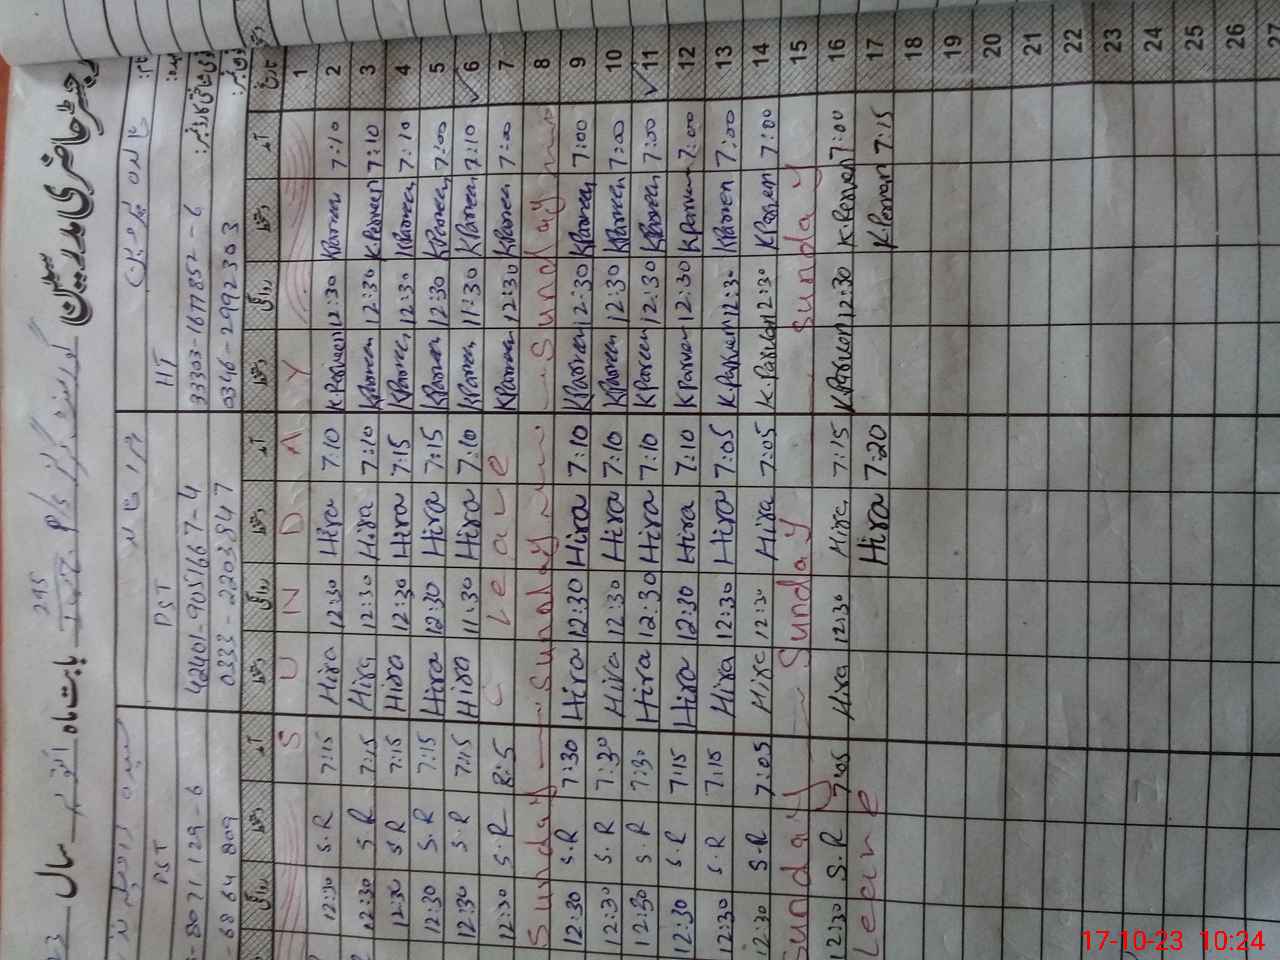 رجسٹر حاضری مدرسین
بابت ماہ اکتوبر سال
295
HT PST PST
33303-1677852-6 42401-9051667-4 8071129-6
0346-2992303 0333-2203847 6864809
تاریخ آمد دستخط روانگی دستخط آمد دستخط روانگی دستخط آمد دستخط روانگی
1 S U N D A Y
2 7:10 K Parveen 12:30 K Parveen 7:10 Hira 12:30 Hira 7:15 S.R 12:30
3 7:10 K Parveen 12:30 K Parveen 7:10 Hira 12:30 Hira 7:15 S.R 12:30
4 7:10 K Parveen 12:30 K Parveen 7:15 Hira 12:30 Hira 7:15 S.R 12:30
5 7:00 K Parveen 12:30 K Parveen 7:15 Hira 12:30 Hira 7:15 S.R 12:30
6 7:10 K Parveen 11:30 K Parveen 7:10 Hira 11:30 Hira 7:15 S.R 12:30
7 7:00 K Parveen 12:30 K Parveen C Leave S.R 12:30
8 Sunday Sunday Sunday
9 7:00 K Parveen 12:30 K Parveen 7:10 Hira 12:30 Hira 7:30 S.R 12:30
10 7:00 K Parveen 12:30 K Parveen 7:10 Hira 12:30 Hira 7:30 S.R 12:30
11 7:00 K Parveen 12:30 K Parveen 7:10 Hira 12:30 Hira 7:30 S.R 12:30
12 7:00 K Parveen 12:30 K Parveen 7:10 Hira 12:30 Hira 7:15 S.R 12:30
13 7:00 K Parveen 12:30 K Parveen 7:05 Hira 12:30 Hira 7:15 S.R 12:30
14 7:00 K Parveen 12:30 K Parveen 7:05 Hira 12:30 Hira 7:05 S.R 12:30
15 Sunday Sunday Sunday
16 7:00 K Parveen 12:30 K Parveen 7:15 Hira 12:30 Hira 7:05 S.R 12:30
17 7:15 K Parveen 7:20 Hira Leave
18
19
20
21
22
23
24
25
26
27
17-10-23 10:24